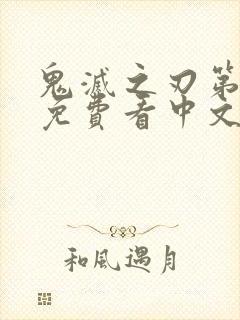 鬼滅之刃第
免費看中文
和風遇月